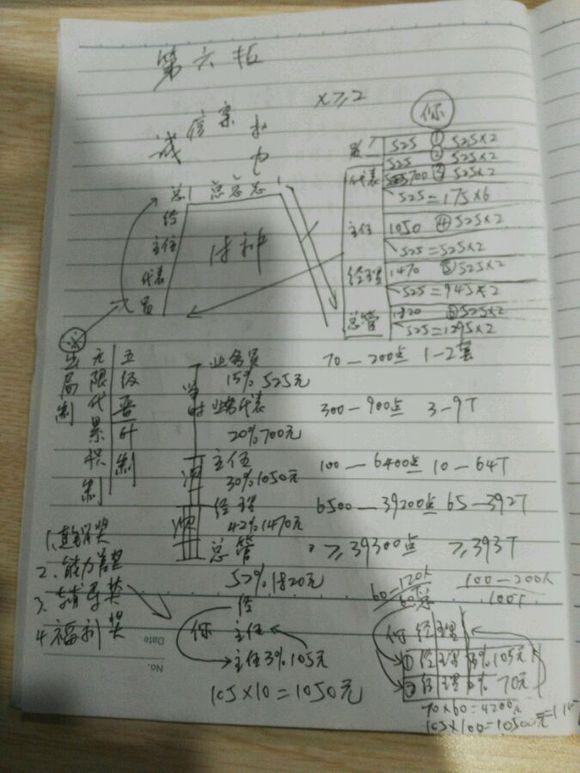 第六
x≥2
你
诚 信
525 ① 525×2
525 ② 525×2
代表 700 ③ 525×2
525=175×6
主任 1050 ④ 525×2
525=525×2
经理 1470 ⑤ 525×2
525=945×2
总管 1820 ⑥ 525×2
525=1295×2
总 总总总
经
主任
代表
员
精神
出局制
无限代累积制
五级晋升制
业务员 70—200点 1-2套
15% 525元
业务代表 300—900点 3-9T
20% 700元
主任 100—6400点 10—64T
30% 1050元
经理 6500—39200点 65—392T
42% 1470元
总管 ≥39300点 ≥393T
52% 1820元
1.直销奖
2.能力差奖
3.辅导奖
4.福利奖
经
你 主任
主任3% 105元
105×10=1050元
120人
100—200人
100T
你 经理
① 经理 3% 105元
② 经理 2% 70元
70×60=4200元
105×100=10500元
Date
No.